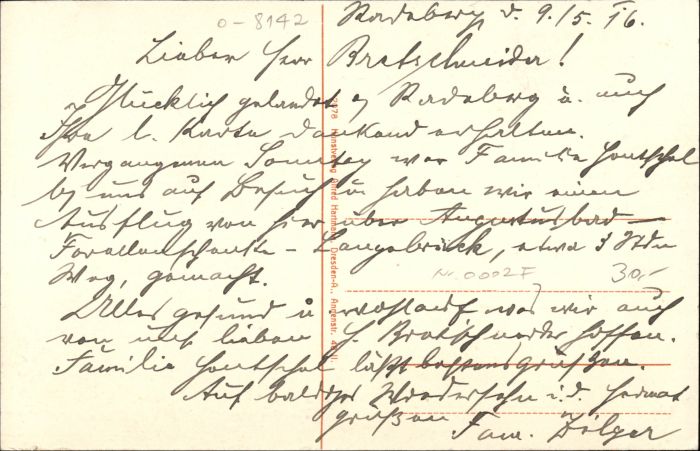 0-8142
Radeberg d. 9./5. 16.
Lieber Herr Bretschneider!
Glücklich gelandet Radeberg u. auch
Ihre l. Karte dankend erhalten.
Vergangenen Sonntag war Familie Hentschel
b/ uns auf Besuch u. haben wir einen
Ausflug von hier über Augustusbad -
Forellenschenke - Langebrück, etwa 3 Stdn
Weg, gemacht.
Alles gesund u. wohlauf was wir auch
von uns. lieben H. Bretschneider hoffen.
Familie Hentschel läßt bestens grüßen.
Auf baldiges Wiedersehn i. d. Heimat
grüßen Fam. Zölger
Nr. 0002F
30,-
Kunstverlag Alfred Hartmann, Dresden-A.,